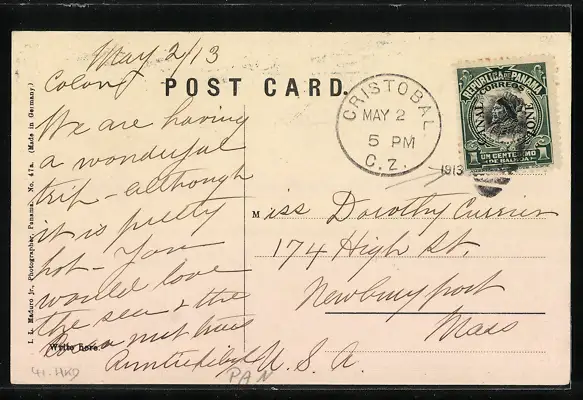 May 2/13
Colon
POST CARD.
We are having
a wonderful
trip - although
it is pretty
hot - You
would love
the sea & the
Cocoanut trees
Write here.
I. L. Maduro Jr., Photographer, Panama. No. 47a. (Made in Germany.)
CRISTOBAL
MAY 2
5 PM
C. Z.
1913
REPUBLICA DE PANAMA
CORREOS
CANAL ZONE
1 UN CENTESIMO 1
DE BALBOA
Miss Dorothy Currier
174 High St.
Newburyport
Mass
U. S. A.
41-HKD
PAN